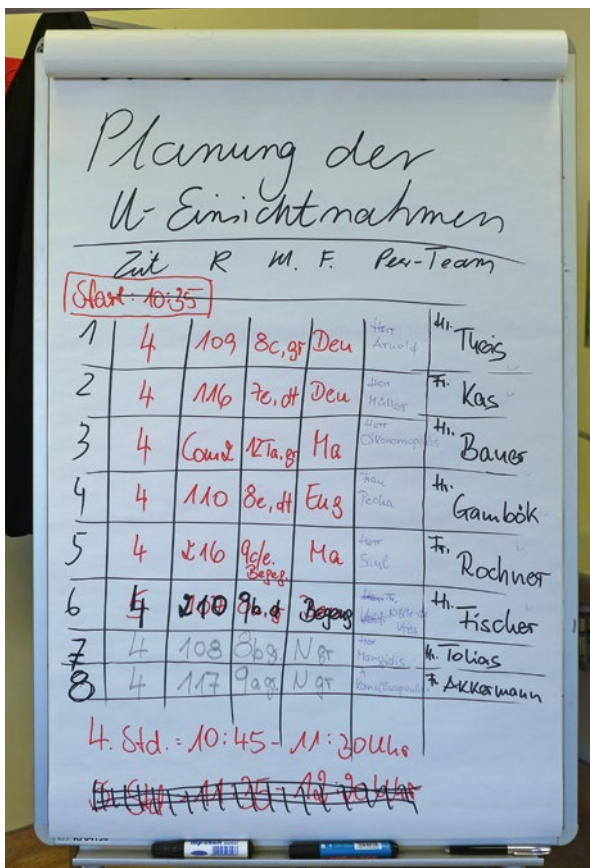 Planung der
U-Einsichtnahmen
Zeit R M. F. Peer-Team
Start: 10:35
1 4 109 8c, gr Deu Herr Arnold Hr. Theis
2 4 116 7e, dt Deu Herr Müller Fr. Kas
3 4 Com2 12Ta, gr Ma Herr Oikonomopoulos Hr. Bauer
4 4 110 8e, dt Eng Frau Pecha Hr. Gambök
5 4 216 9c/e. Begeg. Ma Herr Fr. Rochner
6 4 210 9b, d Begegng Fr. Vries Hr. Fischer
7 4 108 8b gr. N gr Herr Hr. Tolias
8 4 117 9a gr. N gr Fr. Akkermann
4. Std. = 10:45 - 11:30 Uhr